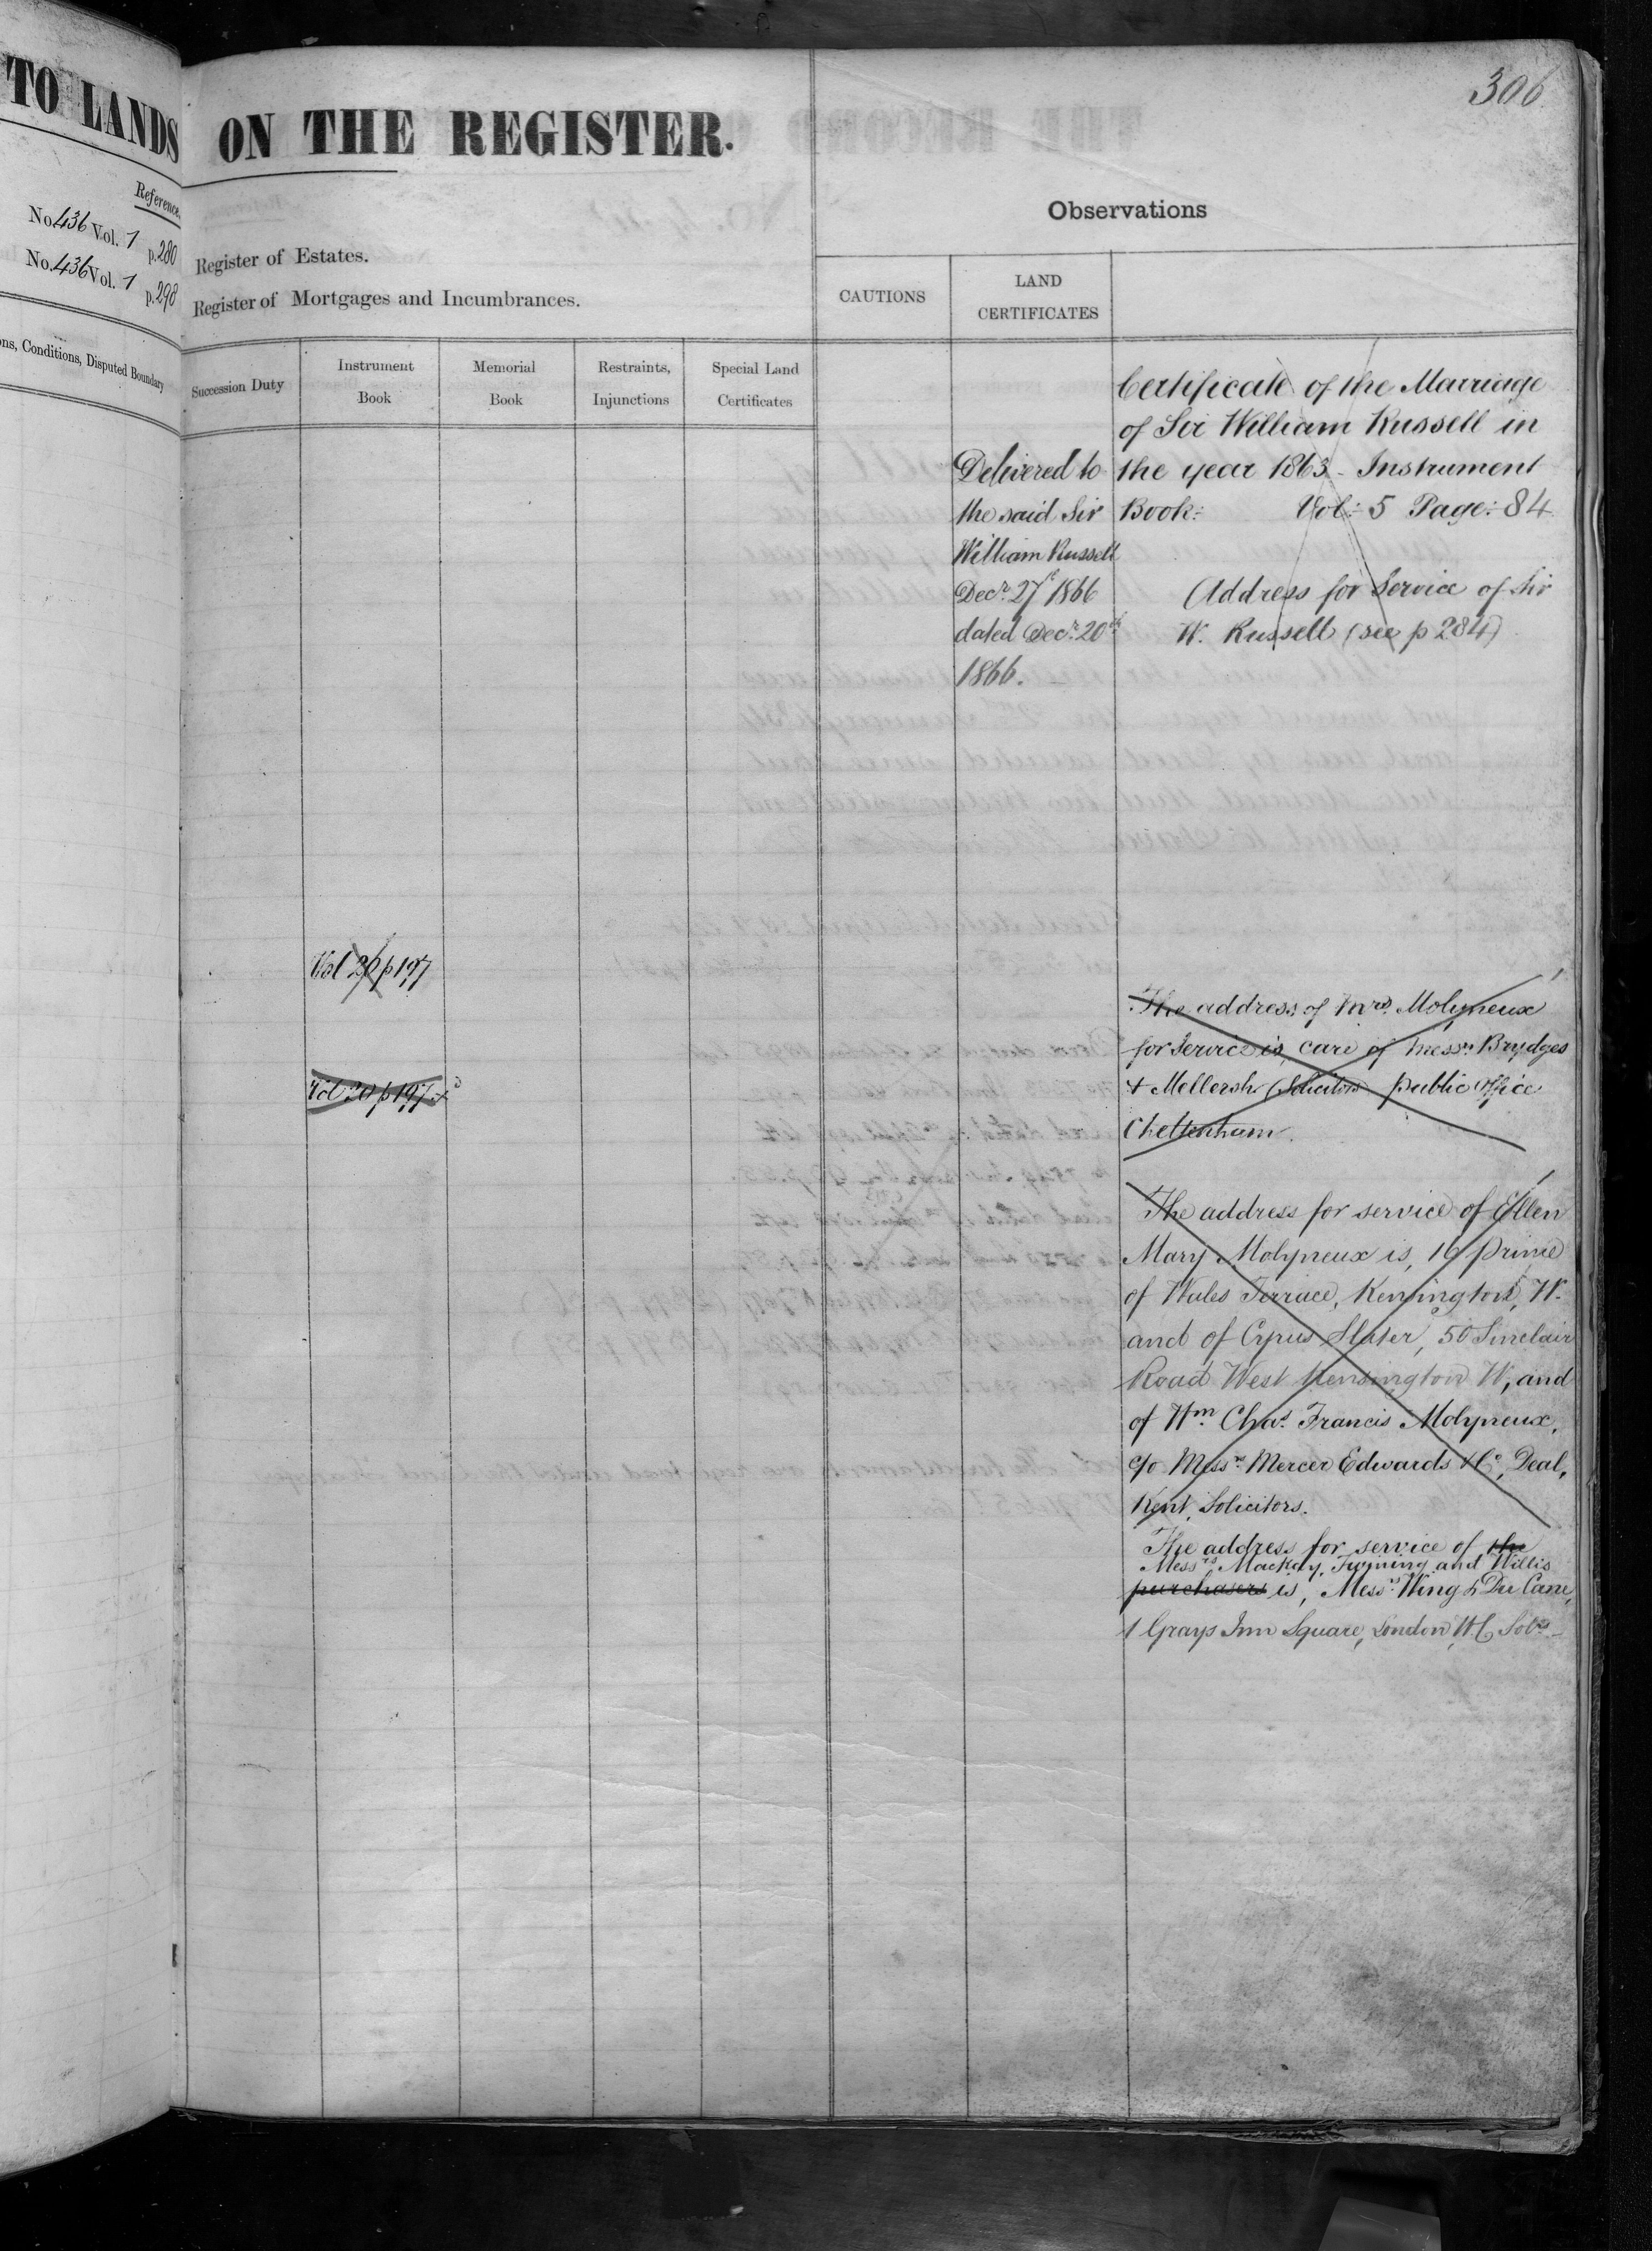 306
TO LANDS
ON THE REGISTER.
Reference.
No. 436 Vol. 1 p. 280
No. 436 Vol. 1 p. 298
Register of Estates.
Register of Mortgages and Incumbrances.
Observations
CAUTIONS
LAND
CERTIFICATES
ons, Conditions, Disputed Boundary
Succession Duty
Instrument
Book
Memorial
Book
Restraints,
Injunctions
Special Land
Certificates
Delivered to
the said Sir
William Russell
Decr. 27 1866
dated Decr. 20th
1866.
Certificate of the Marriage
of Sir William Russell in
the year 1863 - Instrument
Book: Vol: 5 Page: 84
Address for Service of Sir
W. Russell (see p 284)
Vol 20 p 197
Vol 20 p 197
The address of Mrs. Molyneux
for Service is, care of Messrs. Brydges
& Mellersh (Solicitors) public Office
Cheltenham.
The address for service of Ellen
Mary Molyneux is, 16 Prince
of Wales Terrace, Kensington, W.
and of Cyrus Slater, 50 Sinclair
Road West Kensington W, and
of Wm. Chas. Francis Molyneux,
c/o Messrs. Mercer Edwards & Co, Deal,
Kent, Solicitors.
The address for service of the
Messrs Mackay, Twining and Willis
purchasers is, Messrs. Wing & Du Cane,
1 Grays Inn Square, London, W.C Solrs